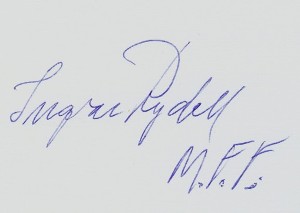 Ingvar Rydell
M.F.F.